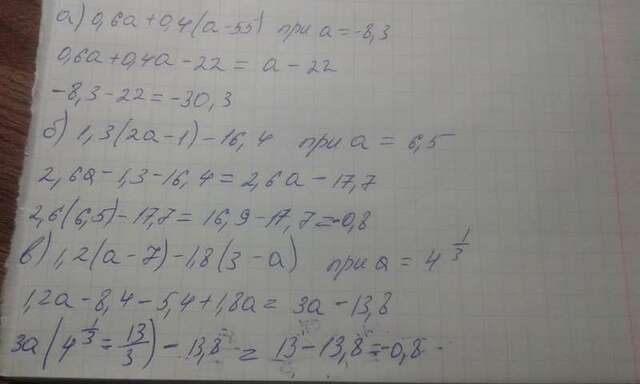 а) 0,6а + 0,4(а - 55) при а = -8,3
0,6а + 0,4а - 22 = а - 22
-8,3 - 22 = -30,3
б) 1,3(2а - 1) - 16,4 при а = 6,5
2,6а - 1,3 - 16,4 = 2,6а - 17,7
2,6(6,5) - 17,7 = 16,9 - 17,7 = -0,8
в) 1,2(а - 7) - 1,8(3 - а) при а = 4 1/3
1,2а - 8,4 - 5,4 + 1,8а = 3а - 13,8
3а(4 1/3 = 13/3) - 13,8 = 13 - 13,8 = -0,8.